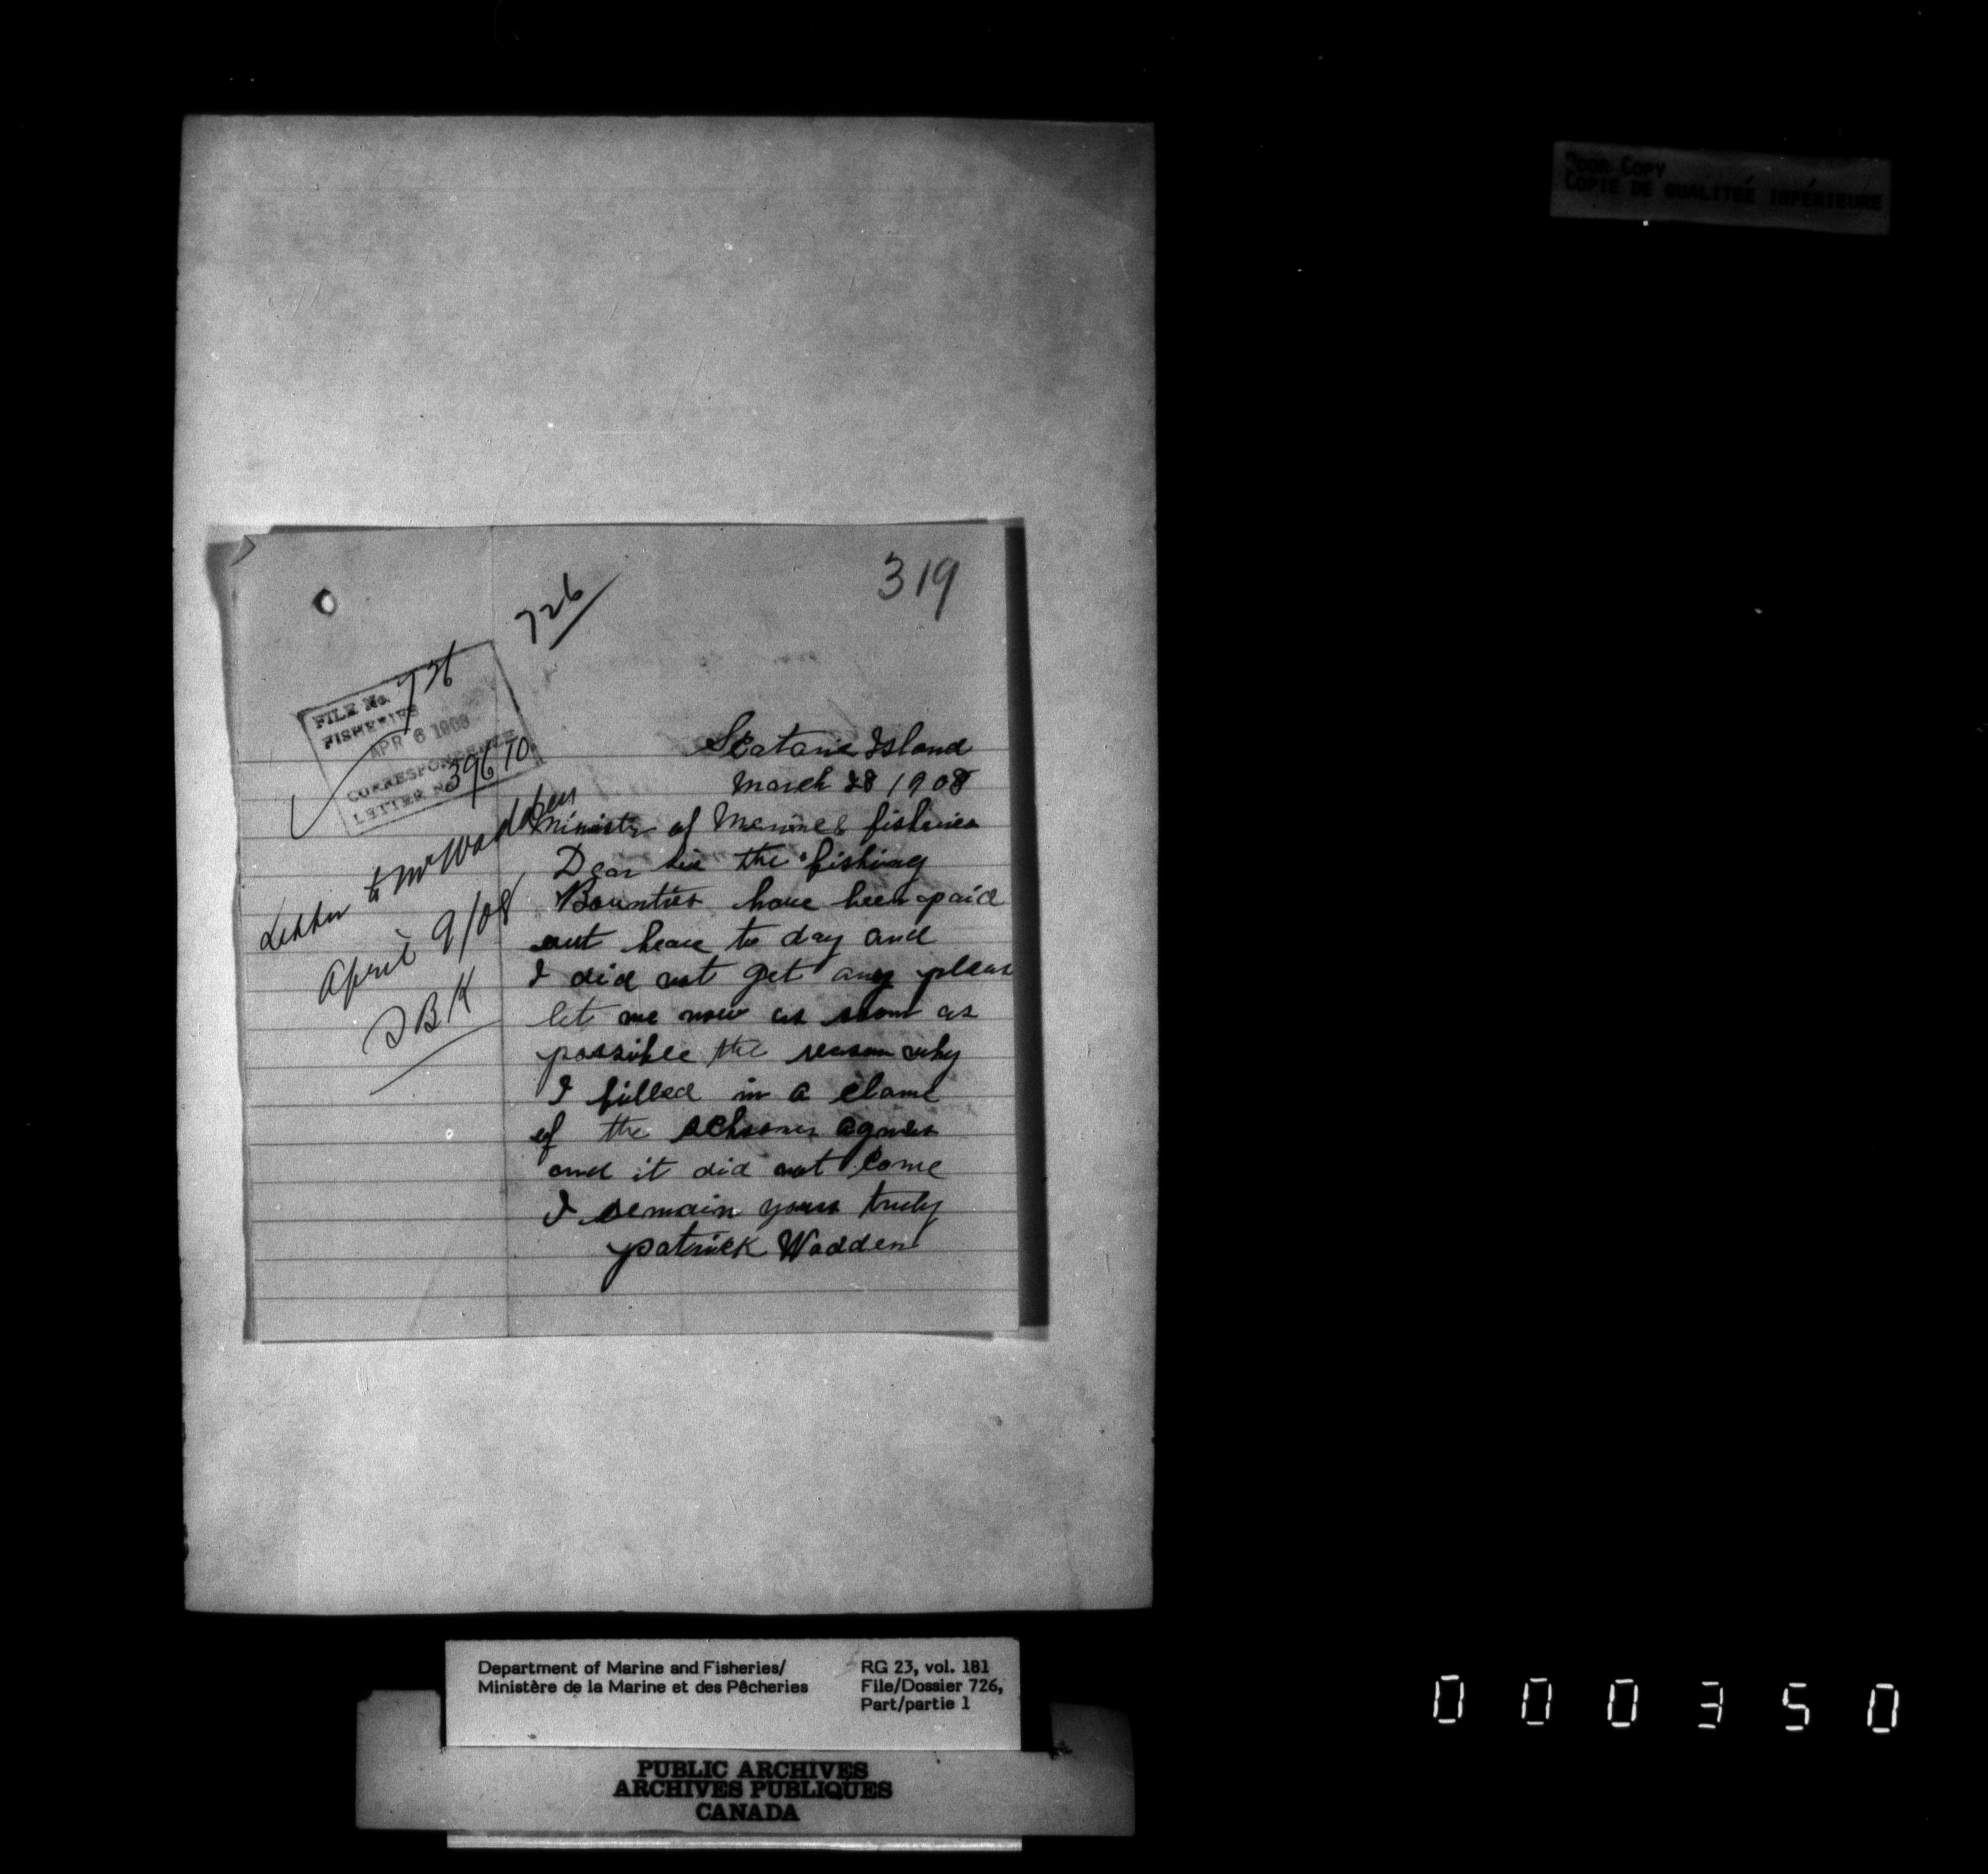 Poor Copy
COPIE DE QUALITEÉ INFÉRIEURE
319
726
FILE No. 726
FISHERIES
APR 6 1908
CORRESPONDENCE
LETTER No. 39670
Letter to Mr Wadden
April 9/08
Scatarie Island
March 28 1908
Minister of Marine & fisheries
Dear sir the fishing
Bounties have been paid
out heare to day and
I did not get any please
let me now as soon as
possible the reason why
I filled in a clame
of the schooner agnes
and it did not come
I remain yours truly
patrick Wadden
Department of Marine and Fisheries/
Ministère de la Marine et des Pêcheries
RG 23, vol. 181
File/Dossier 726,
Part/partie 1
PUBLIC ARCHIVES
ARCHIVES PUBLIQUES
CANADA
000350